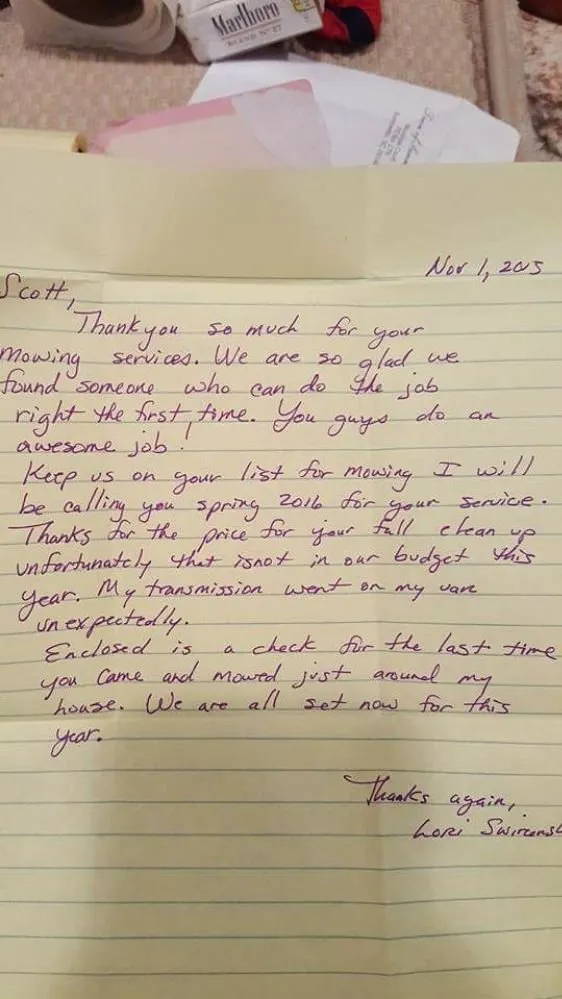 Marlboro
BLEND Nº 27
Nov 1, 2015
Scott,
Thank you so much for your
mowing services. We are so glad we
found someone who can do the job
right the first time. You guys do an
awesome job!
Keep us on your list for mowing I will
be calling you spring 2016 for your service.
Thanks for the price for your fall clean up
unfortunately that isnot in our budget this
year. My transmission went on my van
unexpectedly.
Enclosed is a check for the last time
you came and mowed just around my
house. We are all set now for this
year.
Thanks again,
Lori